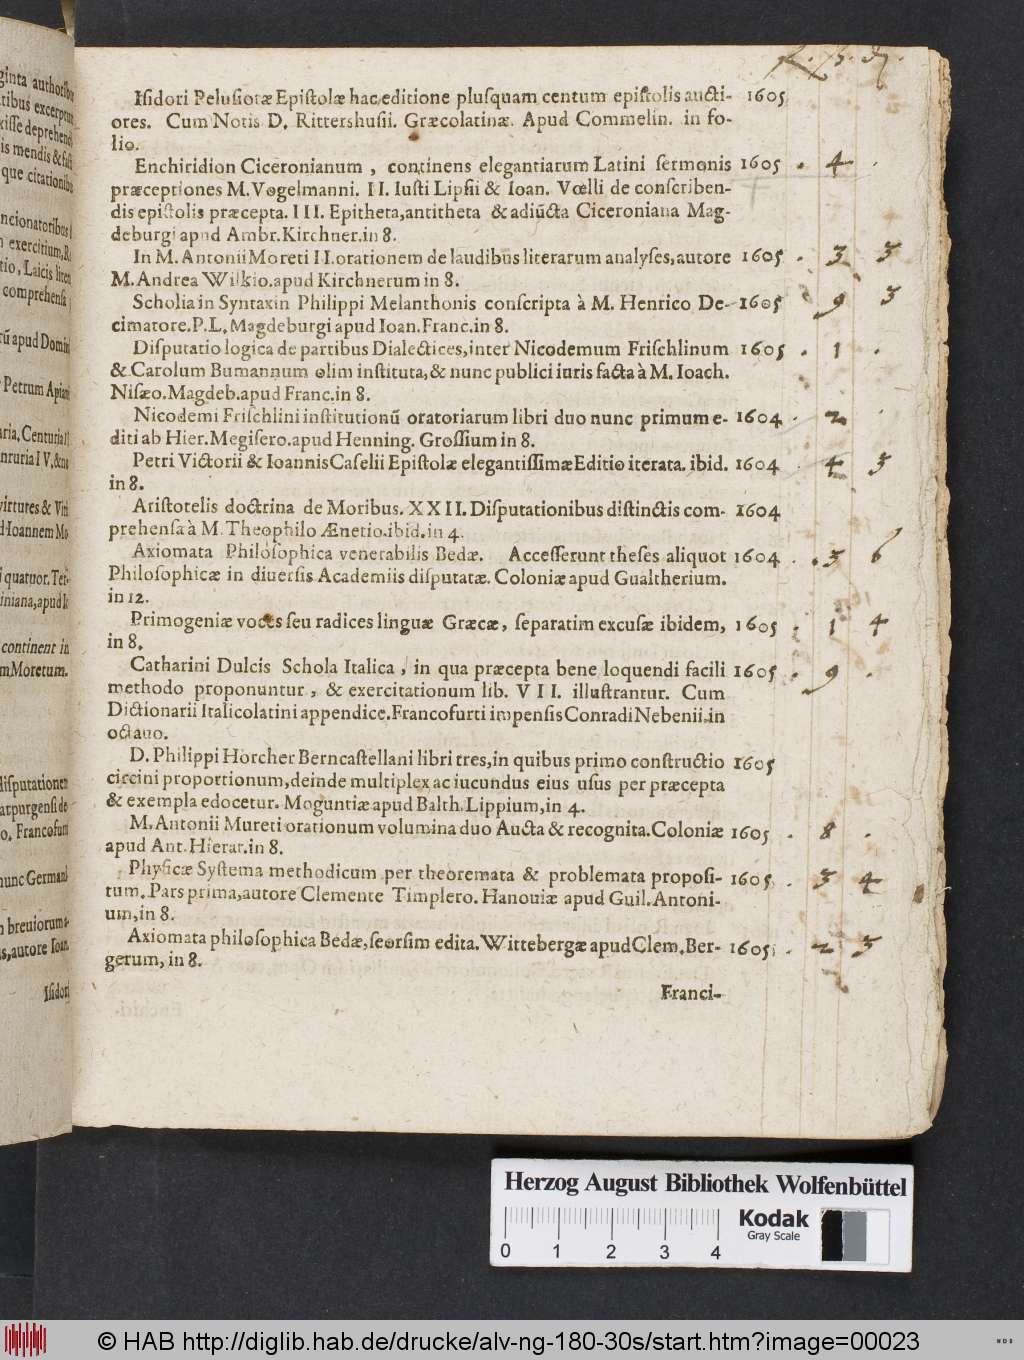 ginta authoribus
tibus excerptum
xisse deprehend
is mendis & fal
que citationibus
ncionatoribus
n exercitium,
tio, Laicis
comprehensa
rū apud Domini
Petrum Apiani
aria, Centuria
nruria IV,
virtures & Viti
d Ioannem Mo
i quatuor. Ter
iniana, apud
continent in
m, Moretum.
disputationem
atpurgensi de
o. Francofurti
nunc Germani
n breuiorum
s, autore Ioan.
Isidori
f. ß. ₰.
Isidori Pelusiotæ Epistolæ hac editione plusquam centum epistolis aucti- 1605
ores. Cum Notis D. Rittershusii. Græcolatinæ. Apud Commelin. in fo-
lio.
Enchiridion Ciceronianum, continens elegantiarum Latini sermonis 1605 . 4 .
præceptiones M. Vogelmanni. II. Iusti Lipsii & Ioan. Vœlli de conscriben-
dis epistolis præcepta. III. Epitheta, antitheta & adiūcta Ciceroniana Mag-
deburgi apud Ambr. Kirchner. in 8.
In M. Antonii Moreti II. orationem de laudibus literarum analyses, autore 1605 . 3 3
M. Andrea Wilkio. apud Kirchnerum in 8.
Scholia in Syntaxin Philippi Melanthonis conscripta à M. Henrico De- 1605 9 3
cimatore. P. L. Magdeburgi apud Ioan. Franc. in 8.
Disputatio logica de partibus Dialectices, inter Nicodemum Frischlinum 1605 . 1 .
& Carolum Bumannum olim instituta, & nunc publici iuris facta à M. Ioach.
Nisæo. Magdeb. apud Franc. in 8.
Nicodemi Frischlini institutionū oratoriarum libri duo nunc primum e- 1604 . 2 .
diti ab Hier. Megisero. apud Henning. Grossium in 8.
Petri Victorii & Ioannis Caselii Epistolæ elegantissimæ Editio iterata. ibid. 1604 4 3
in 8.
Aristotelis doctrina de Moribus. XXII. Disputationibus distinctis com- 1604
prehensa à M. Theophilo Ænetio. ibid. in 4.
Axiomata Philosophica venerabilis Bedæ. Accesserunt theses aliquot 1604 . 3 6
Philosophicæ in diuersis Academiis disputatæ. Coloniæ apud Gualtherium.
in 12.
Primogeniæ voces seu radices linguæ Græcæ, separatim excusæ ibidem, 1605 . 1 4
in 8.
Catharini Dulcis Schola Italica, in qua præcepta bene loquendi facili 1605 . 9 .
methodo proponuntur, & exercitationum lib. VII. illustrantur. Cum
Dictionarii Italicolatini appendice. Francofurti impensis Conradi Nebenii, in
octauo.
D. Philippi Horcher Berncastellani libri tres, in quibus primo constructio 1605
circini proportionum, deinde multiplex ac iucundus eius usus per præcepta
& exempla edocetur. Moguntiæ apud Balth. Lippium, in 4.
M. Antonii Mureti orationum volumina duo Aucta & recognita. Coloniæ 1605 . 8 .
apud Ant. Hierat. in 8.
Physicæ Systema methodicum per theoremata & problemata proposi- 1605 . 3 4
tum. Pars prima, autore Clemente Timplero. Hanouiæ apud Guil. Antoni-
um, in 8.
Axiomata philosophica Bedæ, seorsim edita. Wittebergæ apud Clem. Ber- 1605 . 2 3
gerum, in 8.
Franci-
Herzog August Bibliothek Wolfenbüttel
0 1 2 3 4
Kodak
Gray Scale
© HAB http://diglib.hab.de/drucke/alv-ng-180-30s/start.htm?image=00023